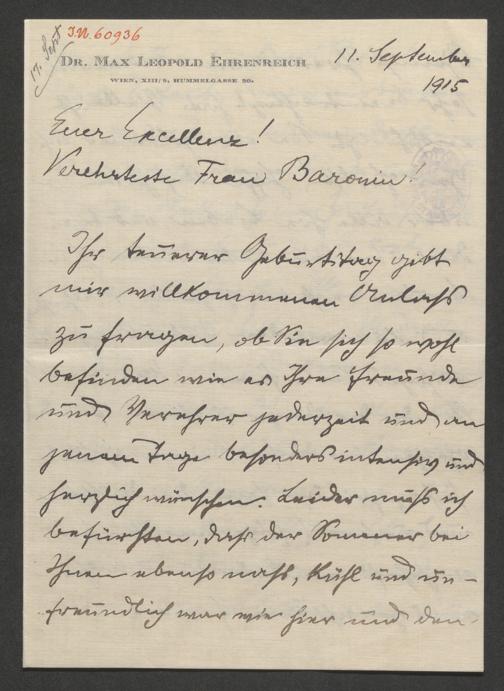 17. Sept
I.N. 60936
DR. MAX LEOPOLD EHRENREICH
WIEN, XIII/9, HUMMELGASSE 20.
11. September
1915
Euer Excellenz!
Verehrteste Frau Baronin!
Ihr teuerer Geburtstag gibt
mir willkommenen Anlass
zu fragen, ob Sie sich so wohl
befinden wie es Ihre Freunde
und Verehrer jederzeit und an
jenem Tage besonders intensiv und
herzlich wünschen. Leider muss ich
befürchten, dass der Sommer bei
Ihnen ebenso nass, kühl und un-
freundlich war wie hier und den